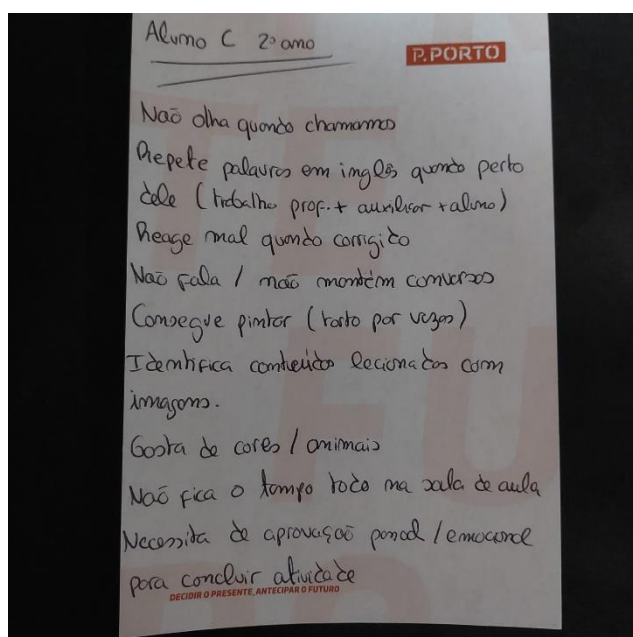 Aluno C 2º ano
P.PORTO
Não olha quando chamamos
Repete palavras em inglês quando perto
dele (trabalho prof. + auxiliar + aluno)
Reage mal quando corrigido
Não fala / não mantém conversas
Consegue pintar (torto por vezes)
Identifica conteúdos lecionados com
imagens.
Gosta de cores / animais
Não fica o tempo todo na sala de aula
Necessita de aprovação / emocional
para concluir atividade
DECIDIR O PRESENTE, ANTECIPAR O FUTURO